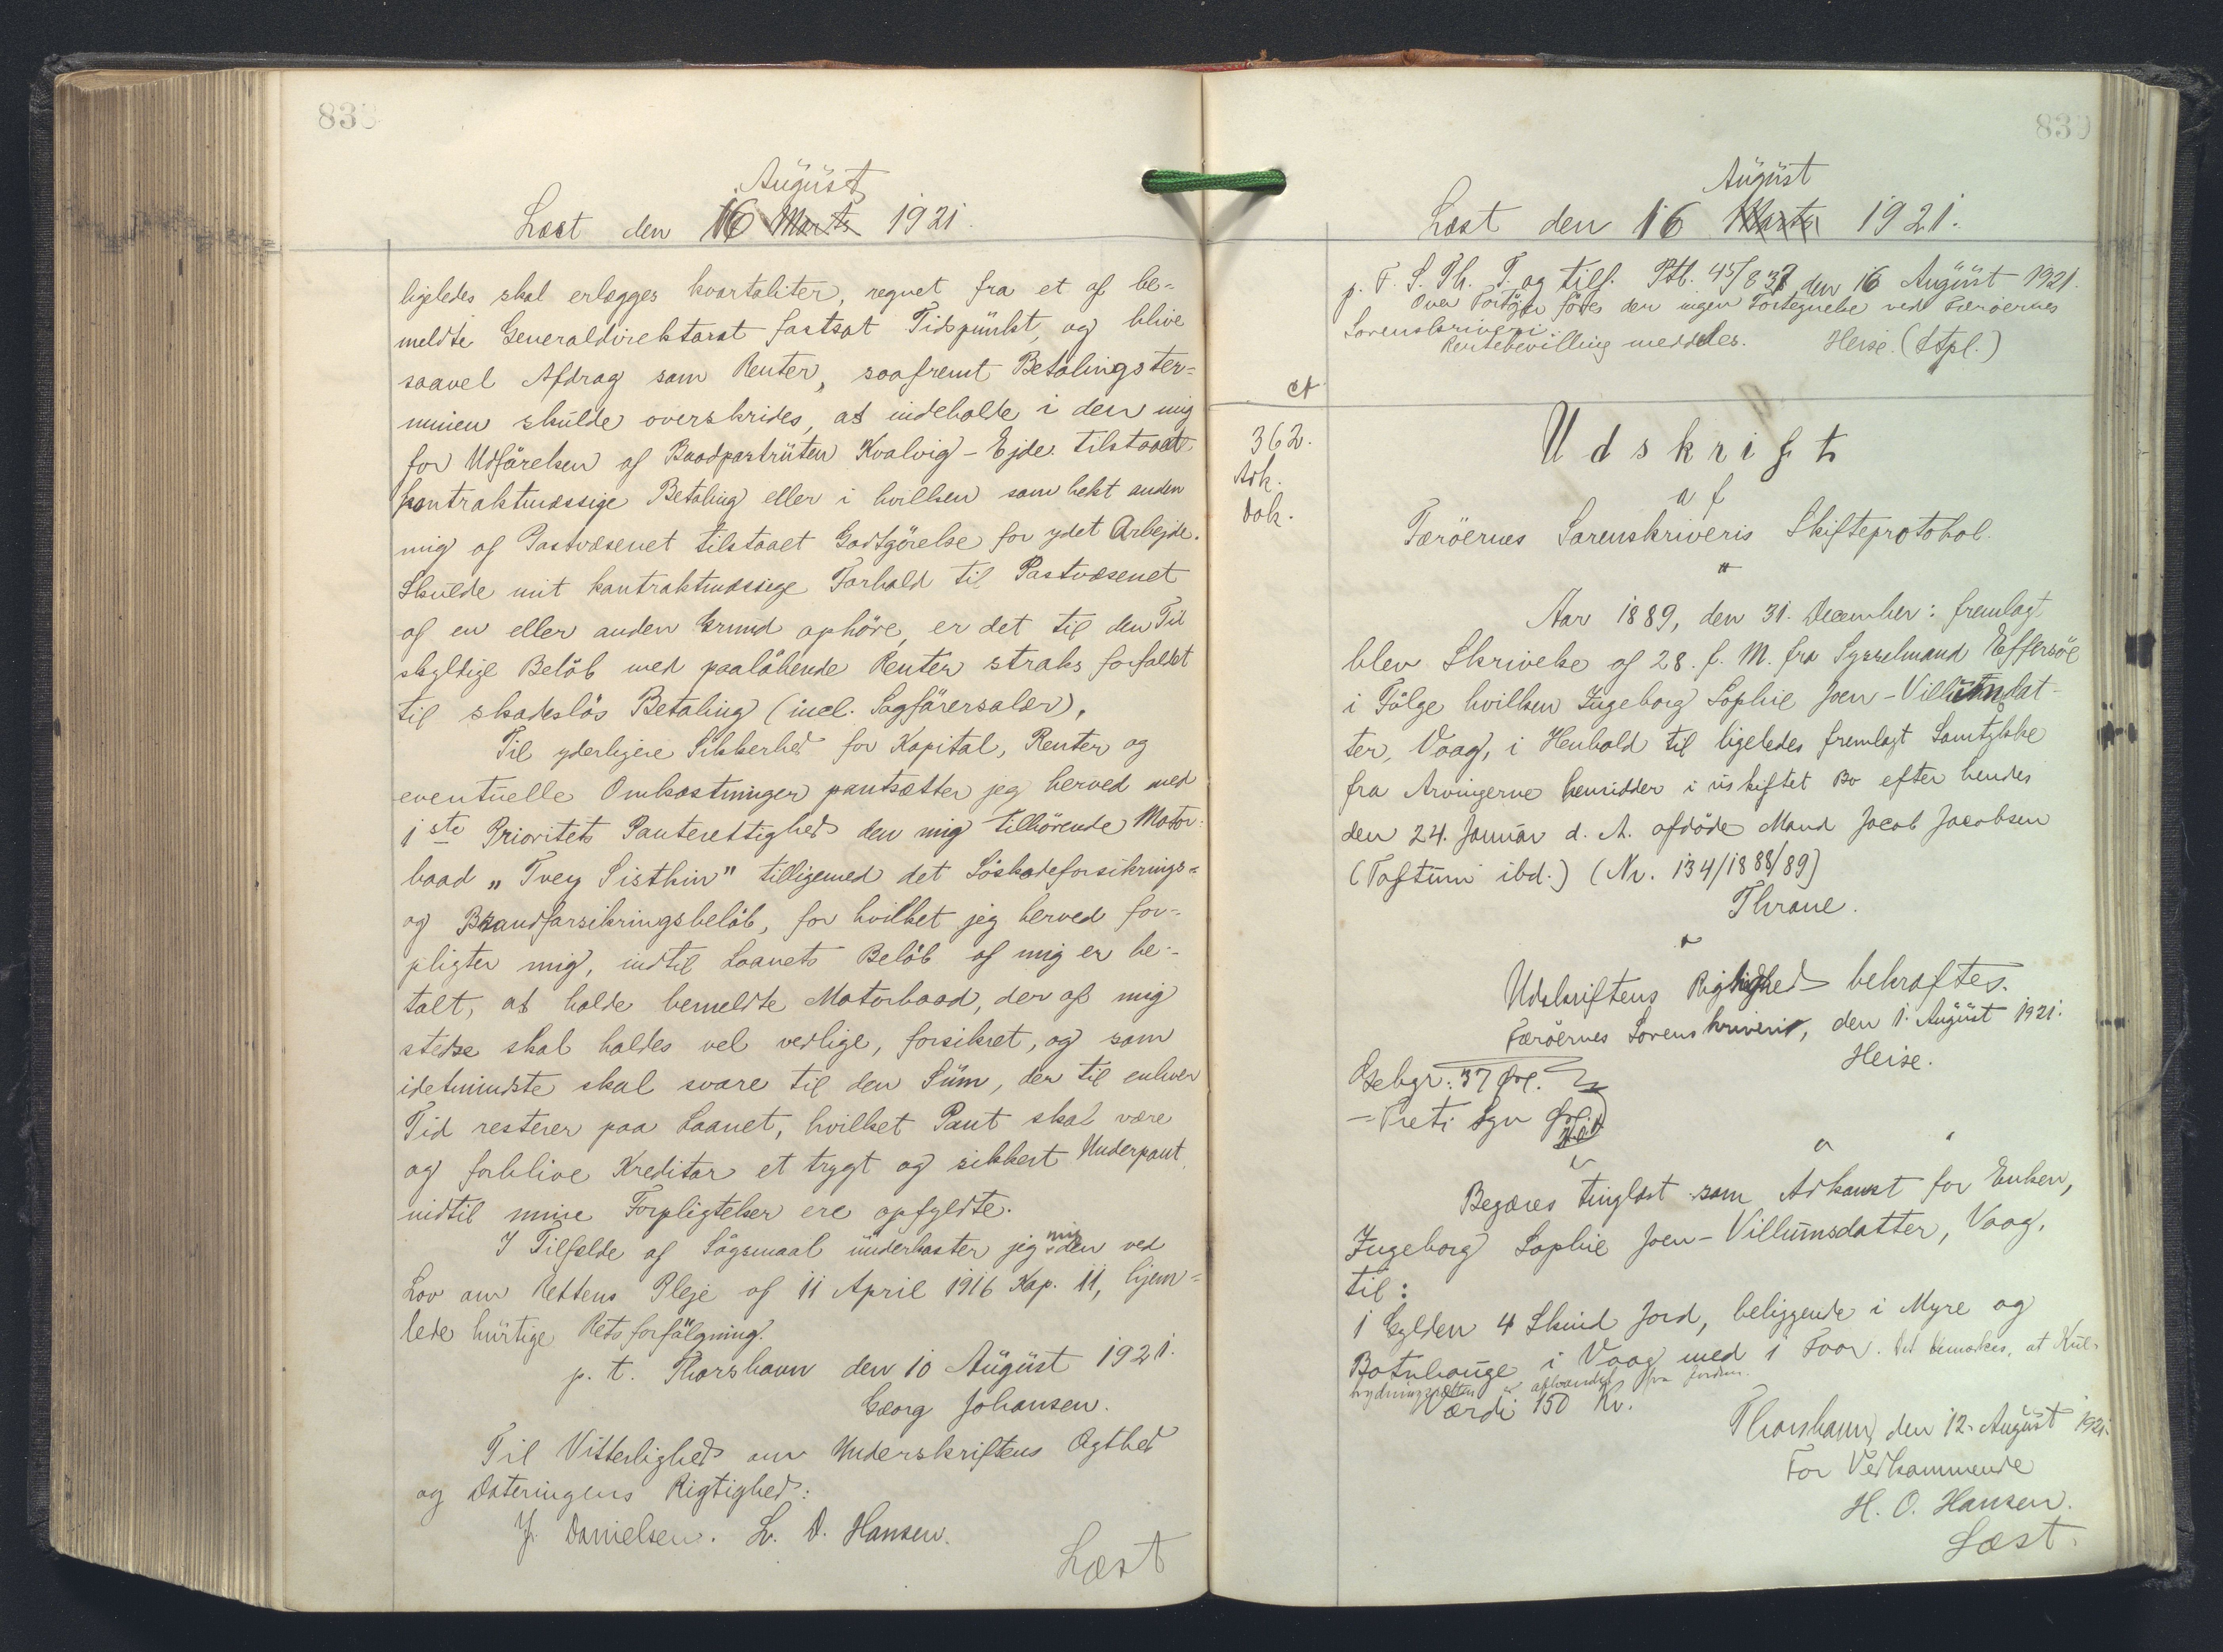 838
August
Læst den 16 Marts 1921.
ligeledes skal erlægges kvartaliter, regnet fra et af be-
meldte Generaldirektorat fastsat Tidspunkt, og blive
saavel Afdrag som Renter, saafremt Betalingster-
minen skulde overskrides, at indeholde i den mig
for Udførelsen af Baadpostruten Kvalvig - Ejde tilstaaede
kontraktmæssige Betaling eller i hvilken som helst anden
mig af Postvæsenet tilstaaet Godtgörelse for ydet Arbejde.
Skulde mit kontraktmæssige Forhold til Postvæsenet
af en eller anden Grund ophöre, er det til den Tid
skyldige Belöb med paalöbende Renter straks forfaldet
til skadeslös Betaling (incl. Sagförersalær).
Til yderligere Sikkerhed for Kapital, Renter og
eventuelle Omkostninger pantsætter jeg herved med
1ste Prioritets Panterettighed den mig tilhörende Motor-
baad „Tvey Sistkin" tilligemed det Söskadeforsikrings-
og Brandforsikringsbelöb, for hvilket jeg herved for-
pligter mig, indtil Laanets Belöb af mig er be-
talt, at holde bemeldte Motorbaad, der af mig
stedse skal holdes vel vedlige, forsikret, og som
idetmindste skal svare til den Sum, der til enhver
Tid resterer paa Laanet, hvilket Pant skal være
og forblive Kreditor et trygt og sikkert Underpant,
indtil mine Forpligtelser ere opfyldte.
I Tilfælde af Sögsmaal underkaster jeg mig den ved
Lov om Rettens Pleje af 11 April 1916 Kap. 11, hjem-
lede hurtige Retsforfölgning.
p. t. Thorshavn den 10 August 1921.
Georg Johansen.
Til Vitterlighed om Underskriftens Ægthed
og Dateringens Rigtighed:
J. Danielsen. L. D. Hansen.
Læst
839
August
Læst den 16 Marts 1921.
p. F. S. Th. T. og tilf. Ptb. 45/837 den 16 August 1921.
Over Fartöjer föres der ingen Fortegnelse ved Færöernes
Sorenskriveri.
Rentebevilling meddeles. Heise. (Stpl.)
362.
Adk.
Dok.
Udskrift
af
Færöernes Sorenskriveris Skifteprotokol.
Aar 1889, den 31. December: fremlagt
blev Skrivelse af 28. f. M. fra Sysselmand Effersöe
i Fölge hvilken Ingeborg Sophie Joen-Villumsdat-
ter, Vaag, i Henhold til ligeledes fremlagt Samtykke
fra Arvingerne hensidder i uskiftet Bo efter hendes
den 24. Januar d. A. afdöde Mand Jacob Jacobsen
(Toftum ibd.) (Nr. 134/1888/89)
Thrane.
Udskriftens Rigtighed bekræftes.
Færöernes Sorenskriveri, den 1. August 1921.
Heise.
Gebyr: 37 Øre.
Begæres tinglæst som Adkomst for Enken,
Ingeborg Sophie Joen-Villumsdatter, Vaag,
til:
1 Gylden 4 Skind Jord, beliggende i Myre og
Botnhauge i Vaag med 1 Foor. Det bemærkes, at Kul-
brydningsretten er afhændet fra Jorden.
Værdi 150 Kr.
Thorshavn, den 12. August 1921.
For Vedkommende
H. O. Hansen.
Læst.